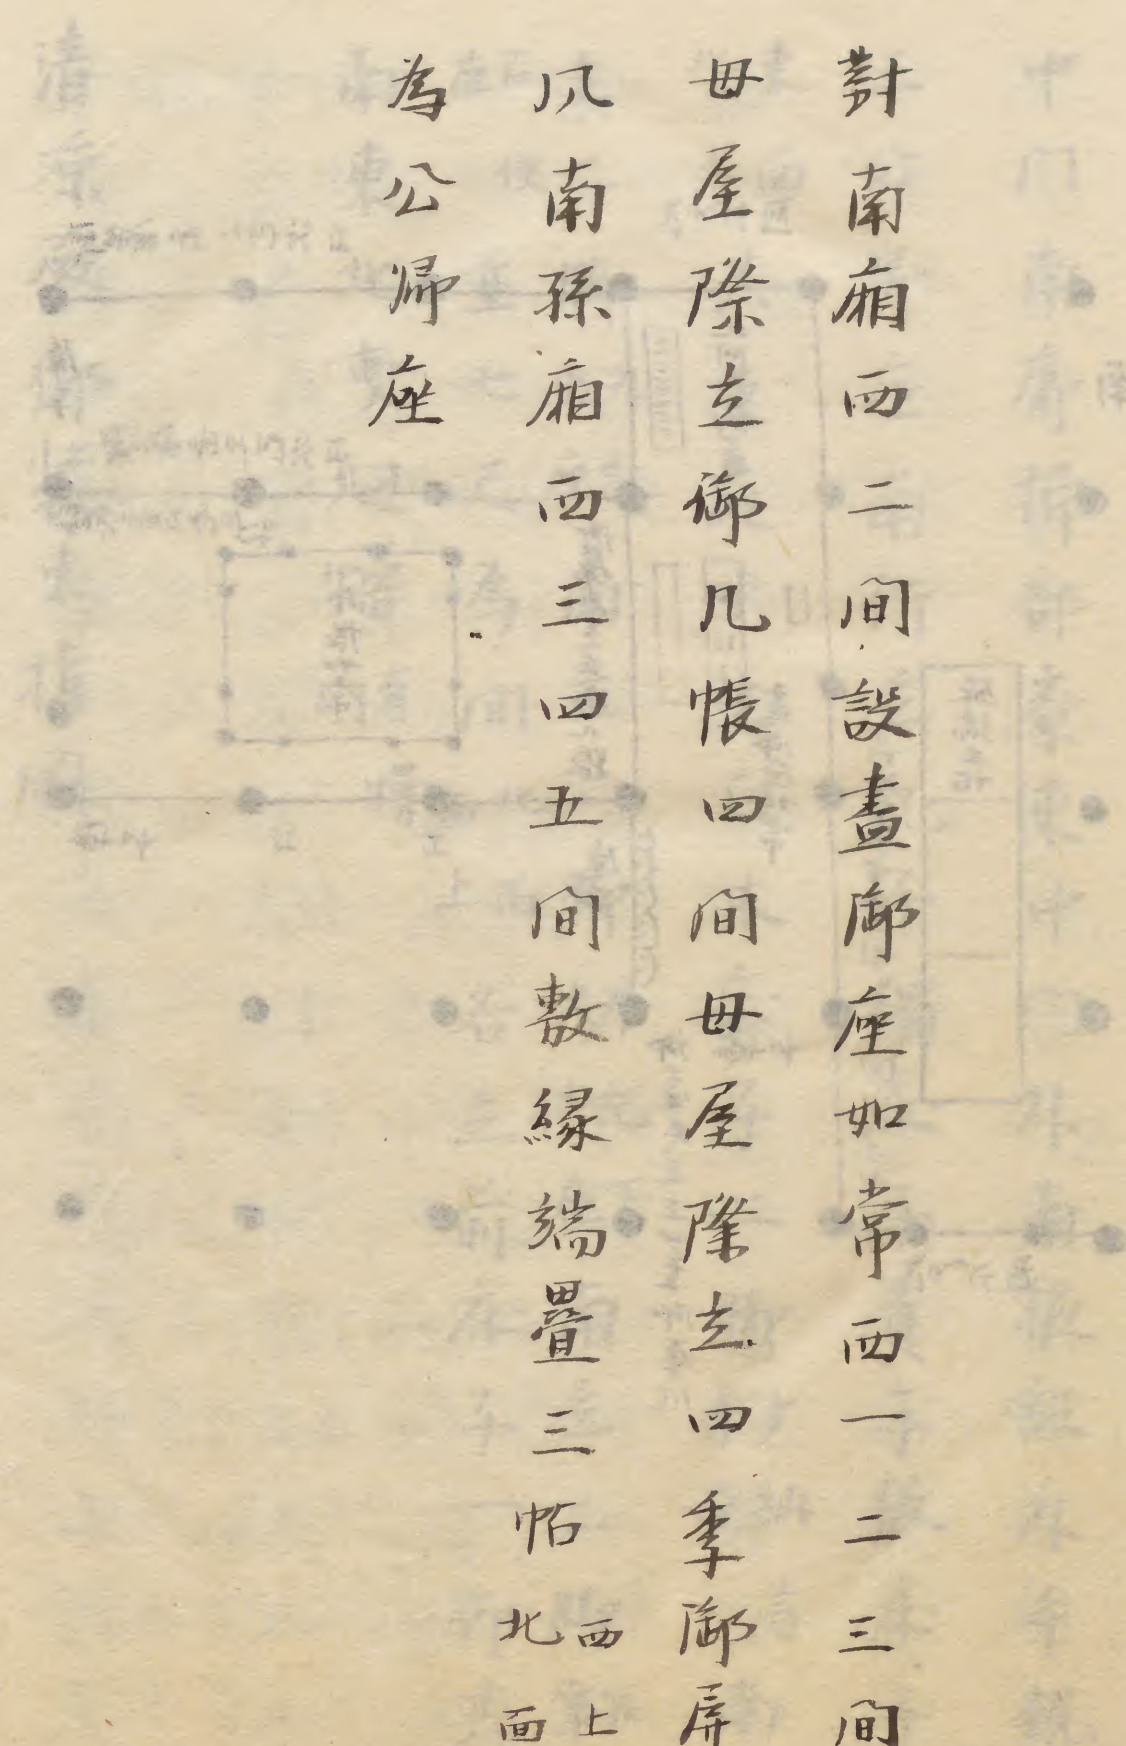 對南廂西二間設晝御座如常西一二三間
母屋際立御几帳四間母屋際立四季御屏
風南孫廂西三四五間敷縁端疊三帖西上北面
為公卿座